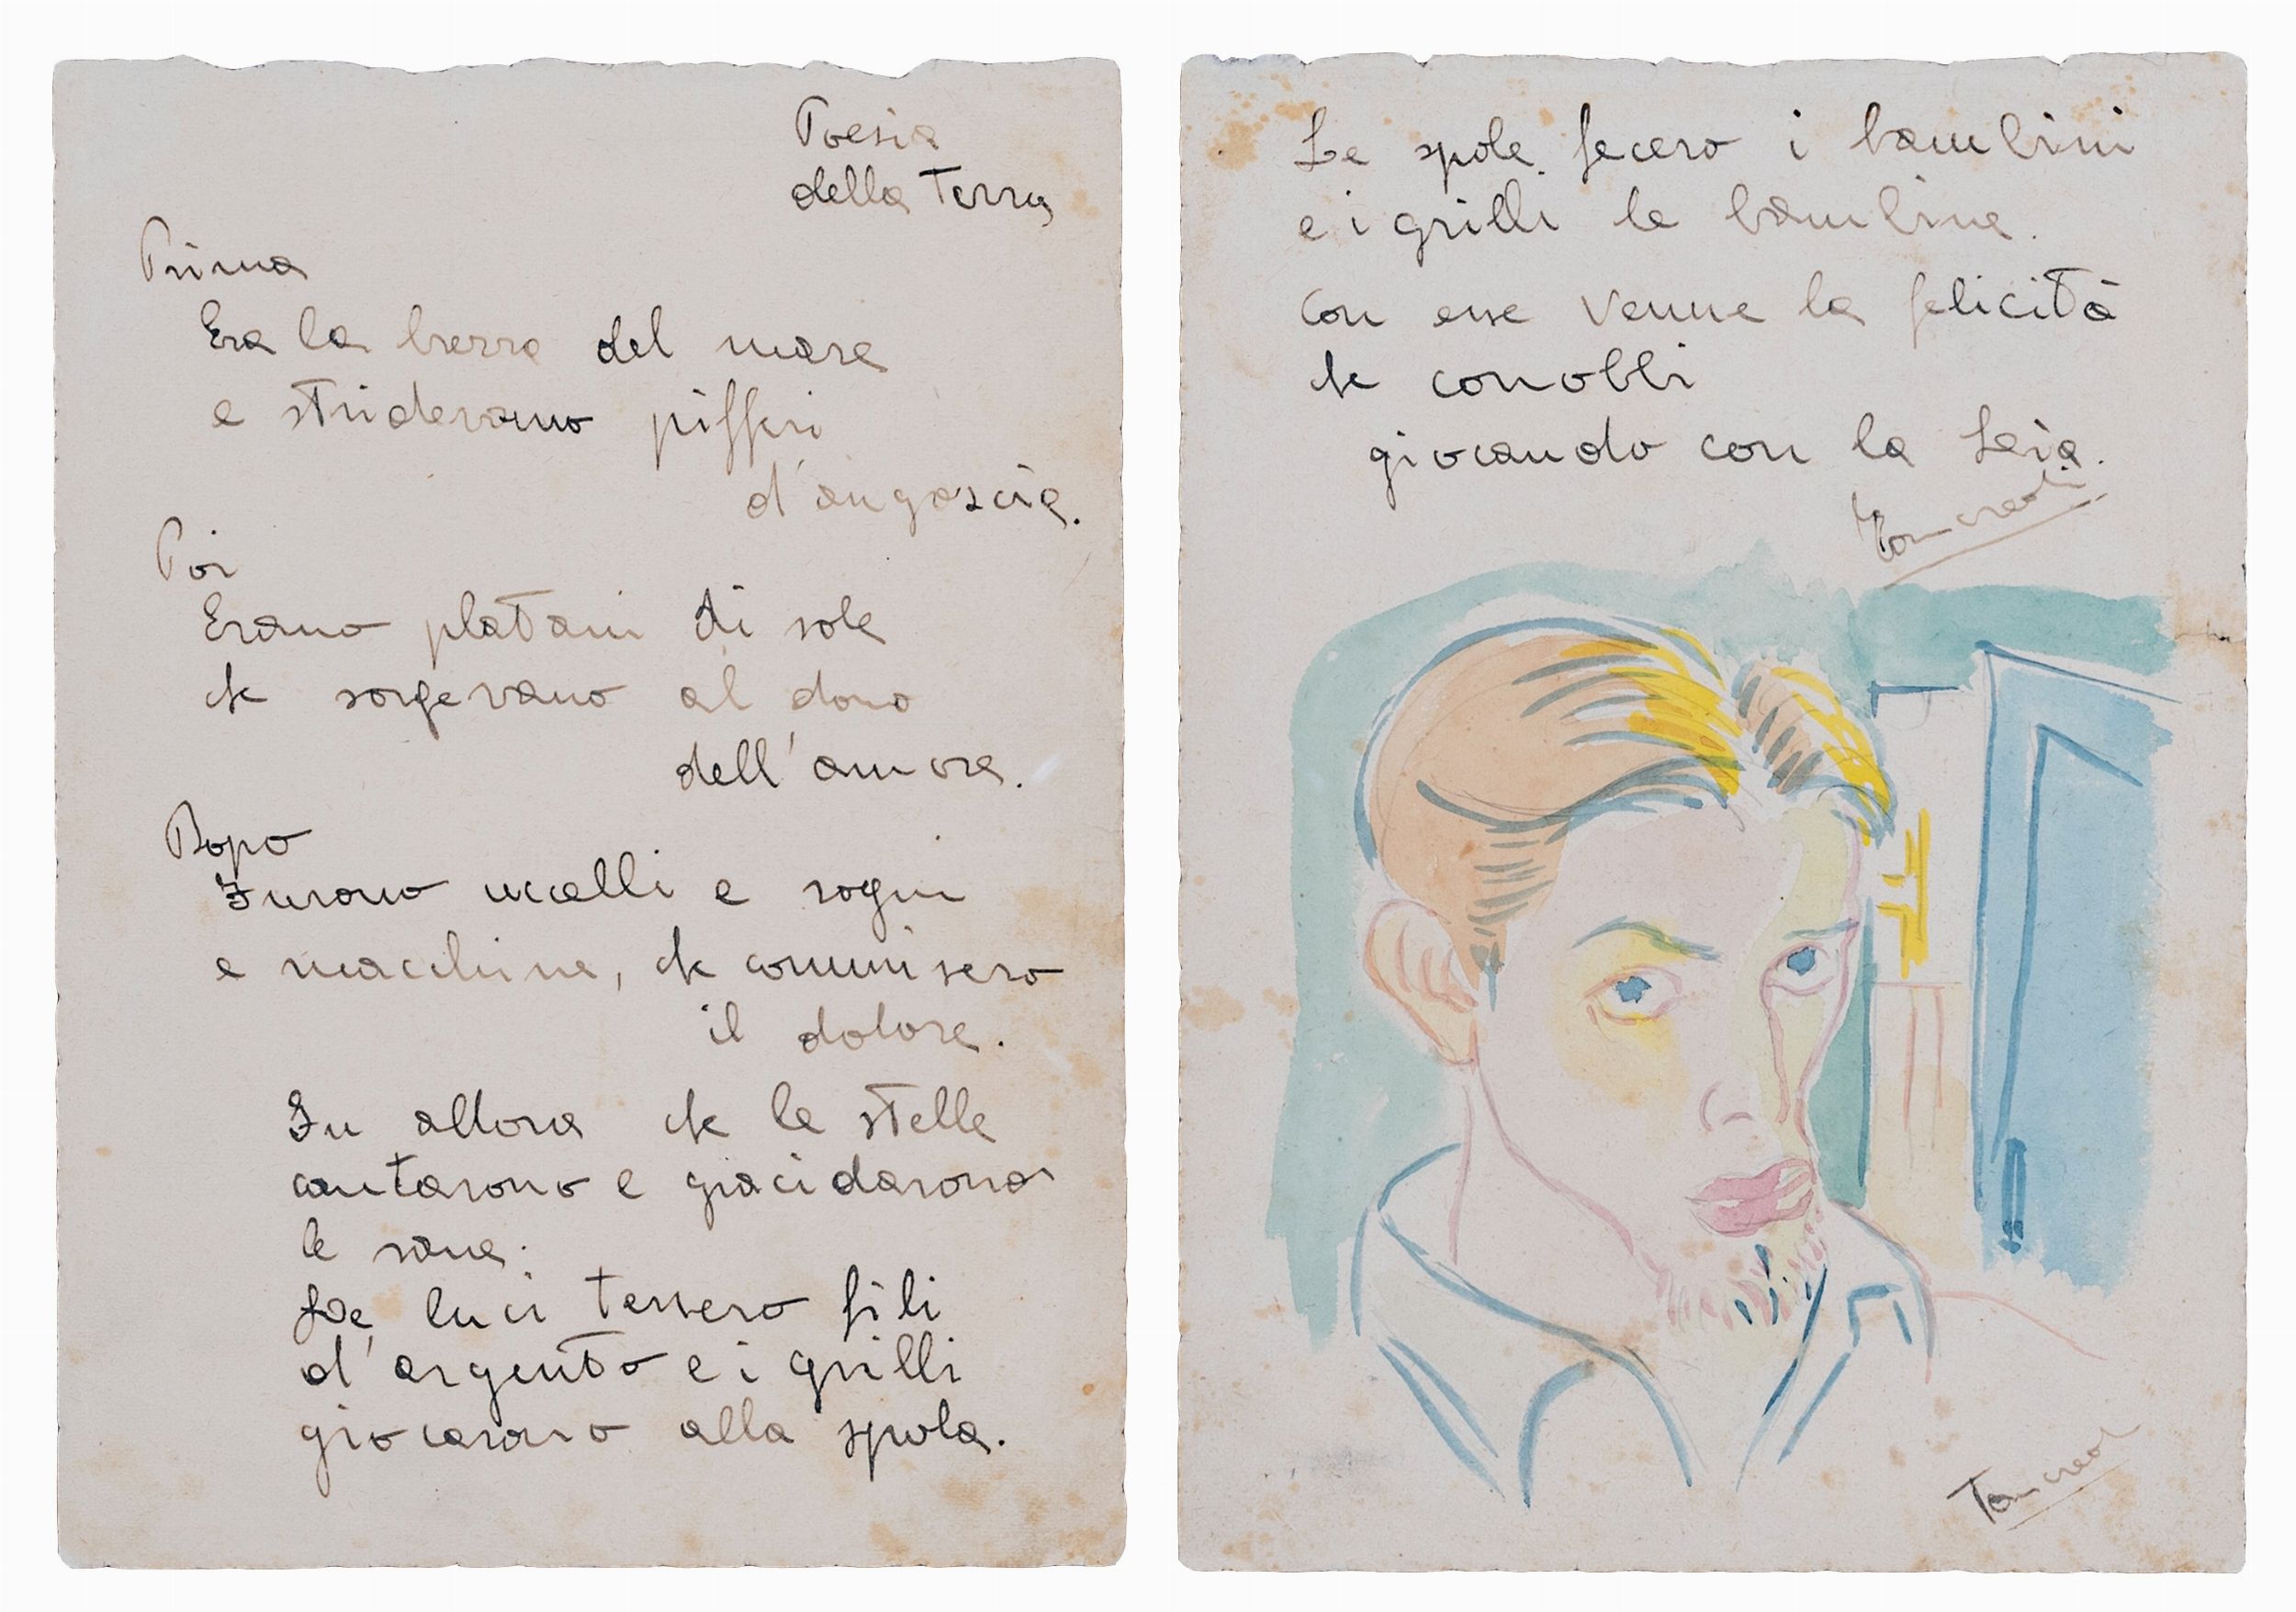 Poesia
della Terra
Prima
Era la brezza del mare
e stridevano pifferi
d'angoscia.
Poi
Erano platani di sole
che sorgevano al dono
dell'amore.
Dopo
Furono uccelli e sogni
e macchine, che commisero
il dolore.
Fu allora che le stelle
cantarono e gracidarono
le rane.
Le luci tessero fili
d'argento e i grilli
giocarono alla spola.
Le spole fecero i bambini
e i grilli le bambine.
Con esse venne la felicità
che conobbi
giocando con la Leia.
Tancredi
Tancredi